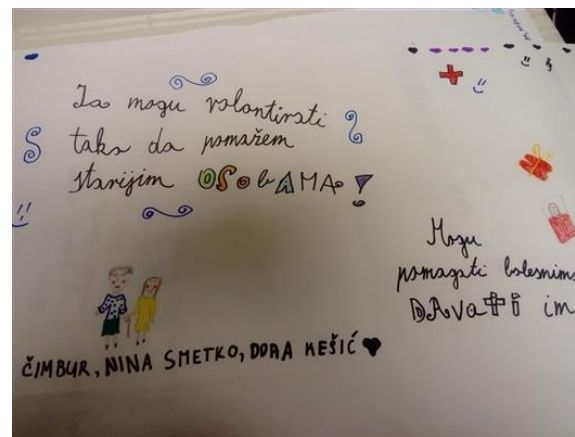 Ja mogu volontirati
tako da pomažem
starijim OSobAMA!
ČIMBUR, NINA SMETKO, DORA KEŠIĆ
Mogu
pomagati bolesnima
DAvaTi im